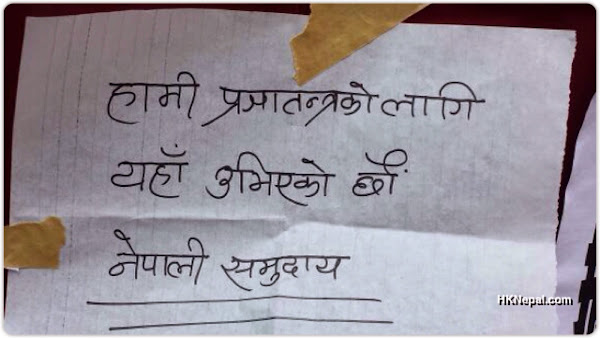 हामी प्रजातन्त्रको लागि
यहाँ उभिएको छौं
नेपाली समुदाय
HKNepal.com